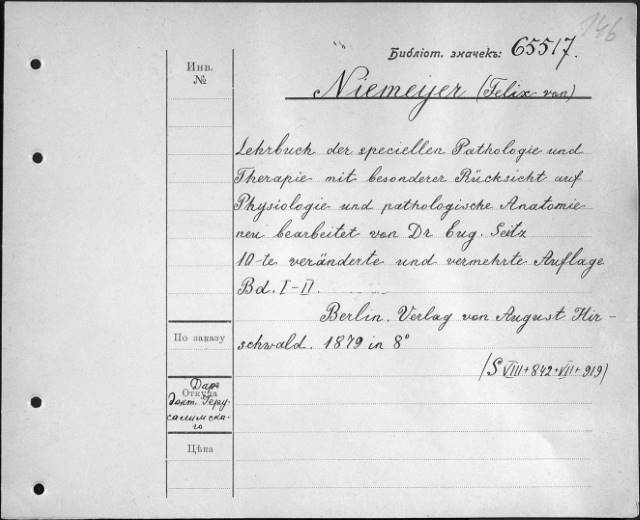 146
Библіот. значекъ: 65517.
Инв.
№
Niemeyer (Felix von)
Lehrbuch der speciellen Pathologie und
Therapie mit besonderer Rücksicht auf
Physiologie und pathologische Anatomie
neu bearbeitet von Dr Eug. Seitz
10-te veränderte und vermehrte Auflage
Bd. I-II.
Berlin. Verlag von August Hir-
schwald. 1879 in 8°
(S VIII+842+VII+919)
По заказу
Откуда
Даръ
докт. Іеру-
салимска-
го
Цѣна